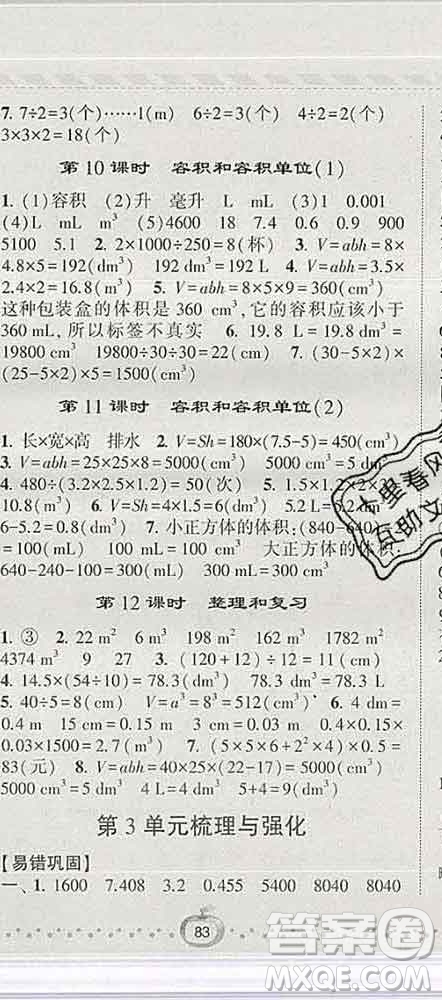 7. 7÷2=3(个)……1(m) 6÷2=3(个) 4÷2=2(个)
3×3×2=18(个)
第 10 课时 容积和容积单位(1)
1. (1)容积 (2)升 毫升 L mL (3)1 0.001
(4)L mL m³ (5)4600 18 7.4 0.6 0.9 900
5100 5.1 2. 2×1000÷250=8(杯) 3. V=abh=8×
4.8×5=192(dm³) 192 dm³=192 L 4. V=abh=3.5×
2.4×2=16.8(m³) 5. V=abh=8×5×9=360(cm³)
这种包装盒的体积是 360 cm³,它的容积应该小于
360 mL,所以标签不真实 6. 19.8 L=19.8 dm³=
19800 cm³ 19800÷30÷30=22(cm) 7. (30-5×2)×
(25-5×2)×5=1500(cm³)
第 11 课时 容积和容积单位(2)
1. 长×宽×高 排水 2. V=Sh=180×(7.5-5)=450(cm³)
3. V=abh=25×25×8=5000(cm³) 5000 cm³=5 dm³
4. 480÷(3.2×2.5×1.2)=50(次) 5. 1.5×1.2×
10.8(m³) 6. V=Sh=4×1.5=6(dm³) 5.2 L=5.2 dm
6-5.2=0.8(dm³) 7. 小正方体的体积:(840-640)÷
=100(mL) 100 mL=100 cm³ 大正方体的体积:
640-240-100=300(mL) 300 mL=300 cm³
第 12 课时 整理和复习
1. ③ 2. 22 m² 6 m³ 198 m² 162 m³ 1782 m²
4374 m³ 9 27 3. (120+12)÷12=11(dm³)
4. 14.5×(54÷10)=78.3(dm³) 78.3 dm³=78.3 L
5. 40÷5=8(cm) V=a³=8³=512(cm³) 6. 4 dm=
0.4 m 15 cm=0.15 m 3 cm=0.03 m 0.4×0.15×
0.03×1500=2.7(m³) 7. (5×5×6+2²×4)×0.5=
83(元) 8. V=abh=40×25×(22-17)=5000(cm³)
5000 cm³=5 dm³ 4 L=4 dm³ 5+4=9(dm³)
第 3 单元梳理与强化
【易错巩固】
一、1. 1600 7.408 3.2 0.455 5400 8040 8040
83
十里春风
互助文
答案圈
MXQE.COM